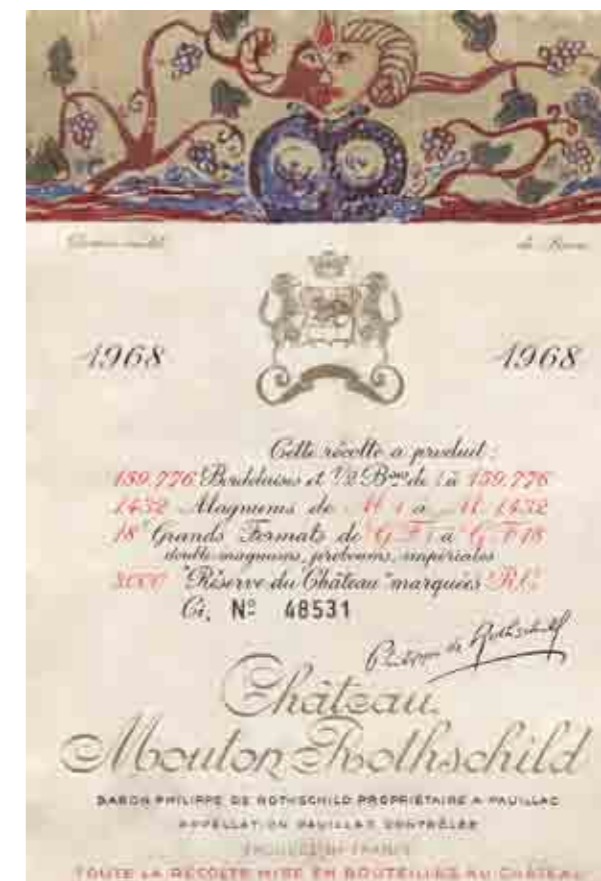 1968 1968
Cette récolte a produit :
139.776 Bordelaises et 1/2 Bses de 1 à 139.776
1432 Magnums de M 1 à M 1432
18 Grands Formats de G F 1 à G F 18
double magnums, jéroboams, impériales
3000 "Réserve du Château" marquées R.C.
Ci, Nº 48531
Philippe de Rothschild
Château
Mouton Rothschild
BARON PHILIPPE DE ROTHSCHILD PROPRIÉTAIRE A PAUILLAC
APPELLATION PAUILLAC CONTRÔLÉE
PRODUCE OF FRANCE
TOUTE LA RÉCOLTE MISE EN BOUTEILLES AU CHÂTEAU